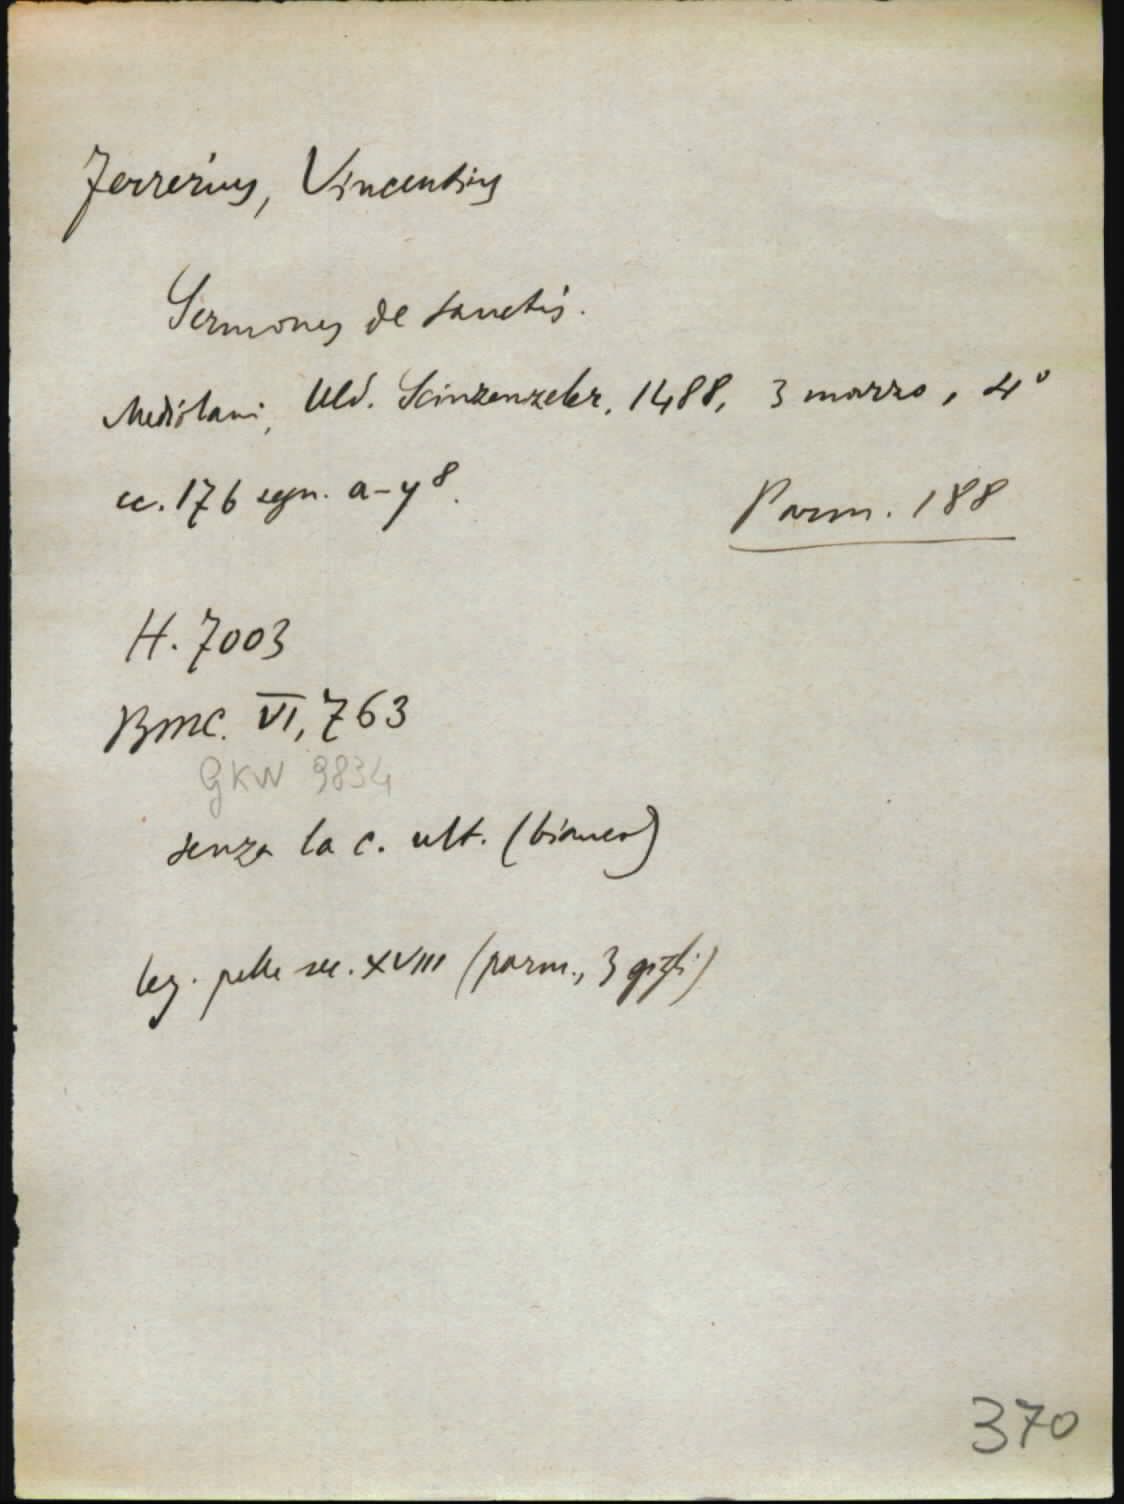 Ferrerius, Vincentius
Sermones de sanctis.
Mediolani, Uld. Scinzenzeler, 1488, 3 marzo, 4°
cc. 176 segn. a-y⁸.
Parm. 188
H. 7003
BMC. VI, 763
GKW 9834
senza la c. ult. (bianca)
leg. pelle sec. XVIII (parm., 3 gigli)
370